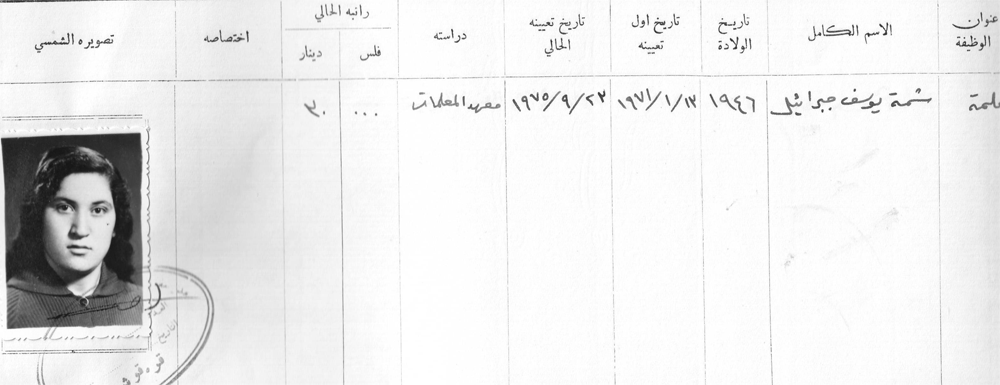 عنوان الوظيفة
الاسم الكامل
تاريخ الولادة
تاريخ اول تعيينه
تاريخ تعيينه الحالي
دراسته
راتبه الحالي
فلس
دينار
اختصاصه
تصويره الشمسي
شمة يوسف جبرائيل
١٩٤٦
١٩٧١/١/١٣
١٩٧٥/٩/٢٣
معهد المعلمات
٠٠٠
٣٠